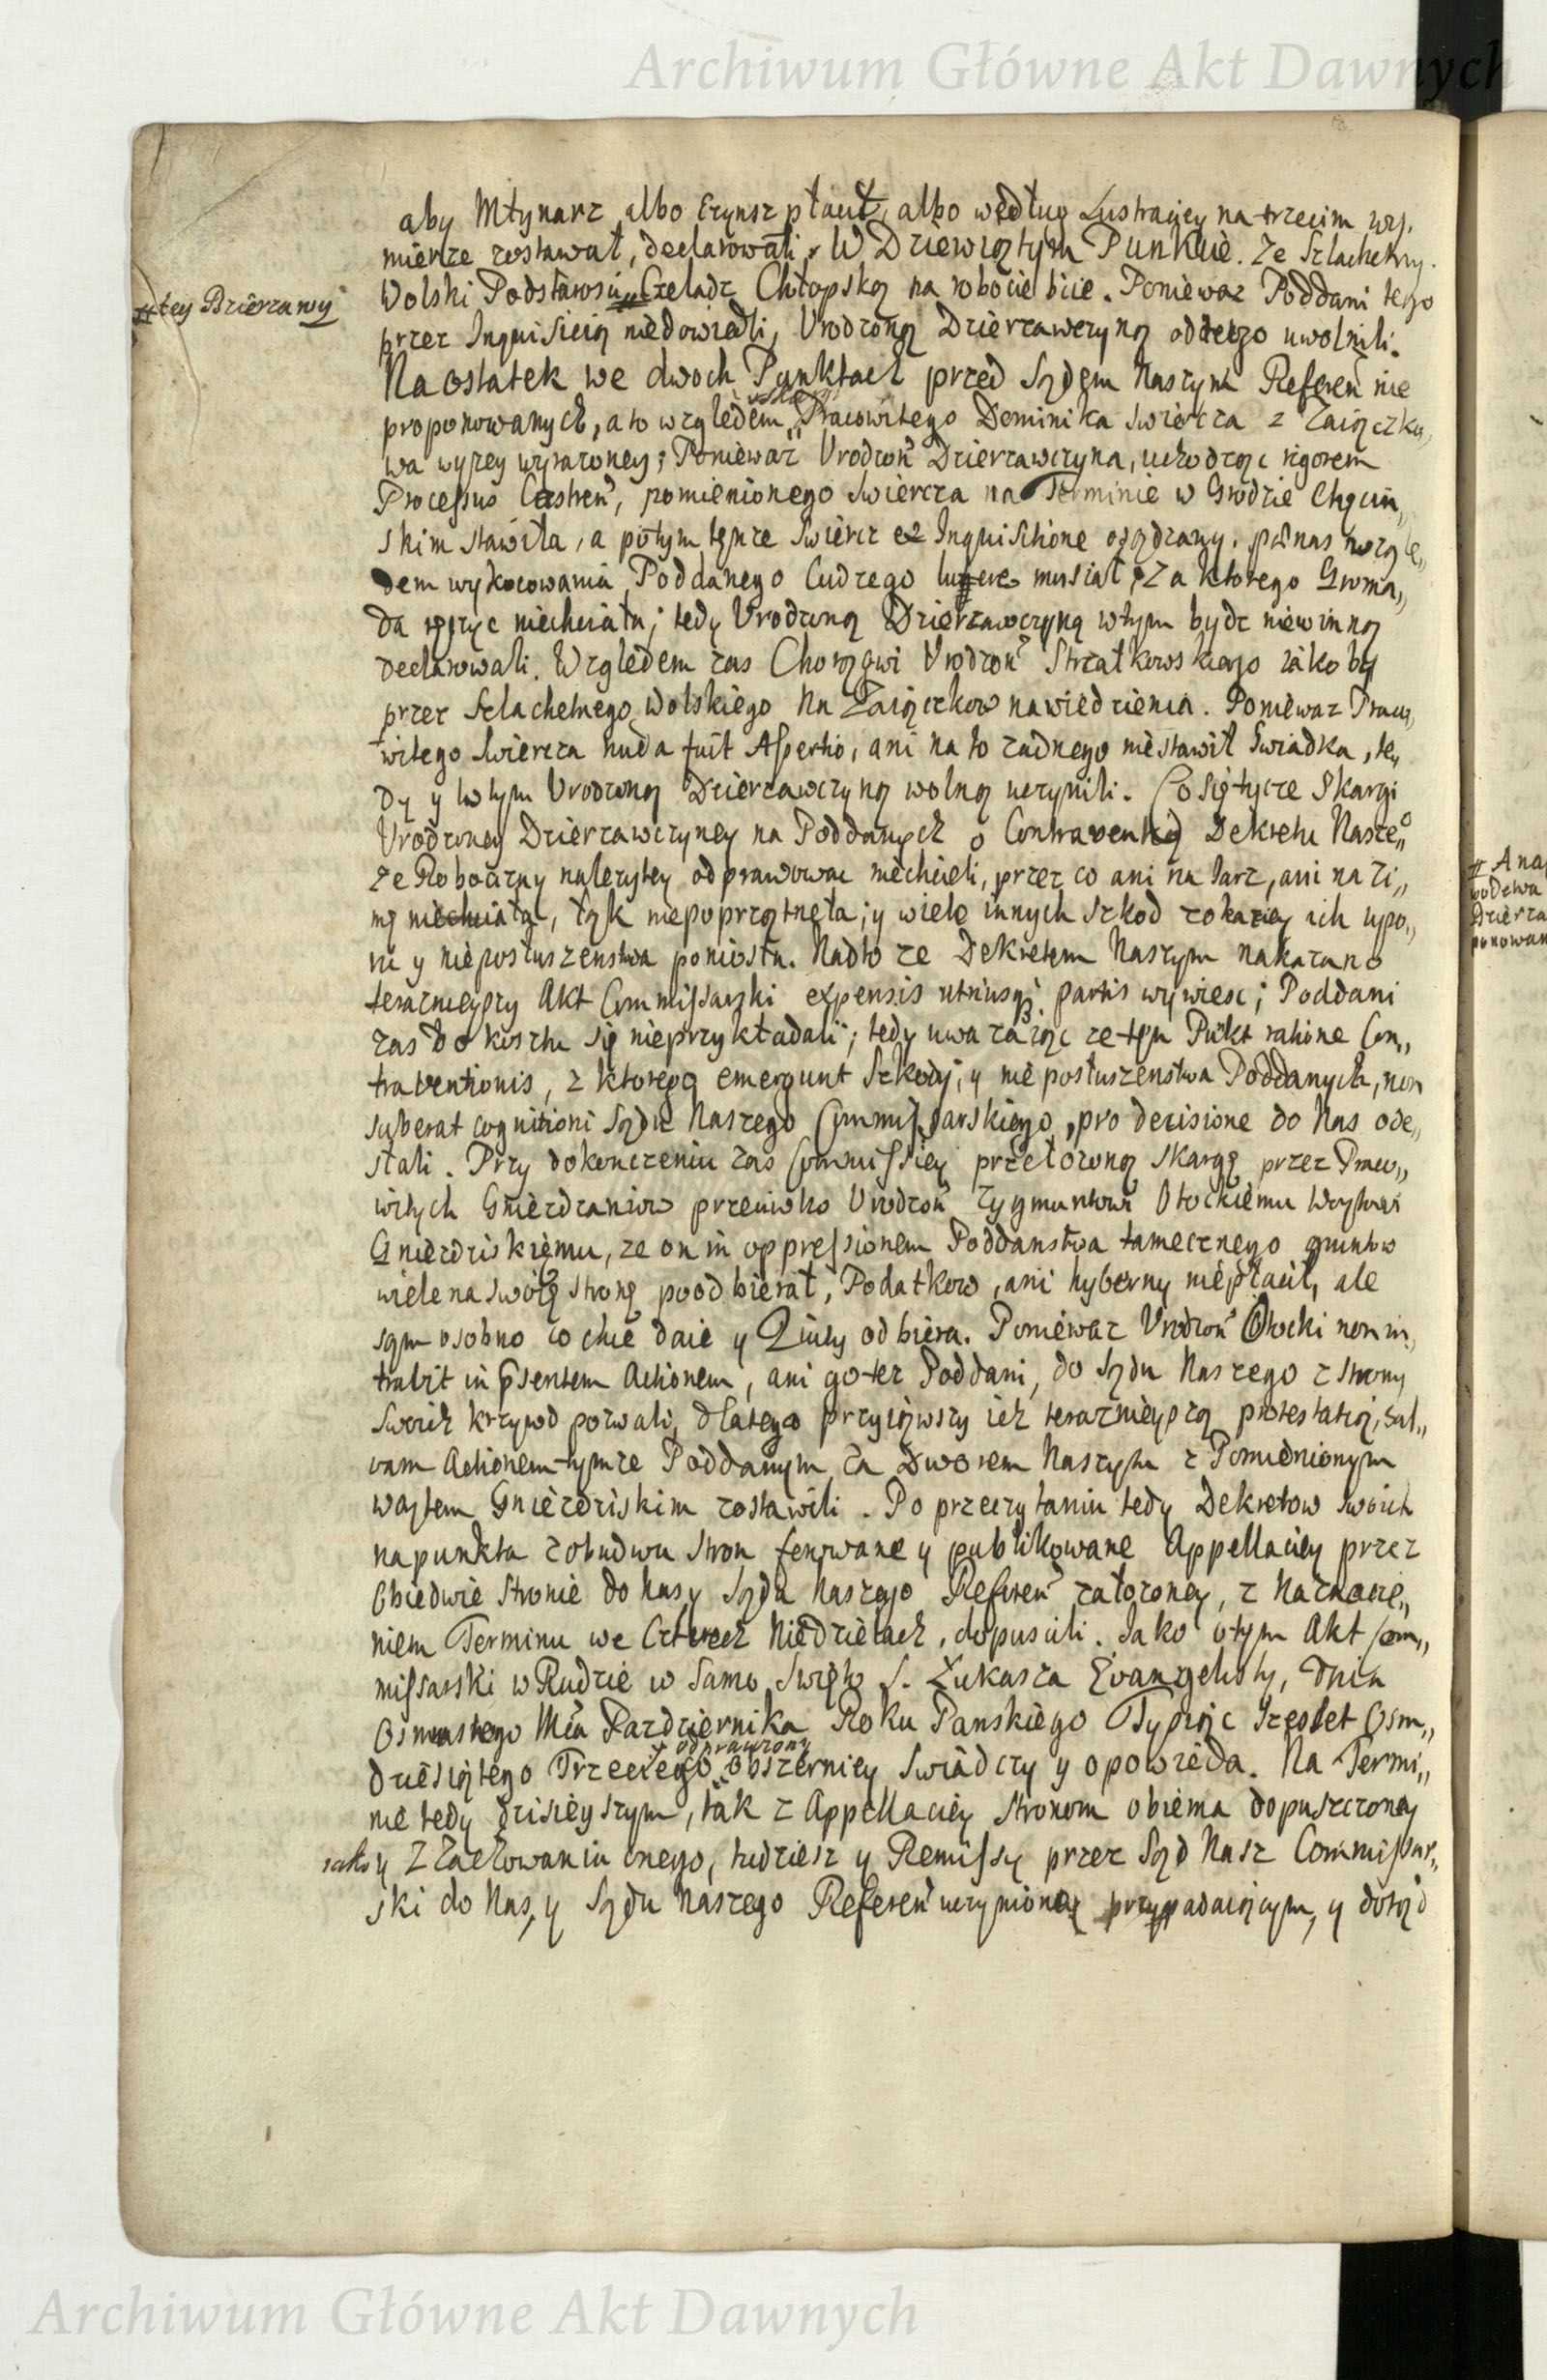 Archiwum Główne Akt Dawnych
aby Młynarz albo Czynsz płacił, albo według Lustracyey na trzecim wy,
mierze zostawał, declarowali. W Dziewiątym Punkcie. Ze Szlachetny
Wolski Podstarosci Czeladz Chłopską na robocie biie. Poniewaz Poddani tego
# tey Dzierzawy
przez Inquisicią niedowiedli, Urodzoną Dzierzawczyną od tego uwolnili.
Na ostatek we dwoch Punktach przed Sądem Naszym Referen nie
proponowanych, a to względem Pracowitego Dominika Swiercza z Zaiączko,
wa wyzey wyrazoney; Poniewaz Urodzon Dzierzawczyna, uchodząc rigorem
Processus Castren, pomienionego Swiercza na Terminie w Grodzie Chęciń,
skim stawiła, a potym tęnze Swiercz ex Inquisitione osądzany,
dem wykocowania Poddanego Cudzego luere musiał, za ktorego Groma,,
da ręczyc niechciała; tedy Urodzoną Dzierzawczyną wtym bydz niewinną
declarowali. Względem zas Chorągwi Urodzon Strzałkowskiego iakoby
przez Szlachetnego Wolskiego Na Zaiączkow nawiedzienia. Poniewaz Praco,
witego Swiercza nuda fuit Assertio, ani na to zadnego niestawił Swiadka, te,
dy y wtym Urodzoną Dzierzawczyną wolną uczynili. Co się tycze Skargi
Urodzoney Dzierzawczyney na Poddanych o Contraventią Dekretu Nasze,,
ze Robocizny nalezytey odprawowac niechcieli, przez co ani na Jarz, ani na Zi,,
mę niechciała, łąk niepoprzątnęła; y wiele innych Szkod z okaziey ich upo,,
ru y nieposłuszenstwa poniosła. Nadto ze Dekretem Naszym nakazano
terazneyszy Akt Commissarski expensis utriusq partis wywiesc; Poddani
zas do kosztu się nieprzykładali; tedy uwazaiąc ze tęn Pukt ratione Con,,
traventionis, z ktorego emergunt Szkody, y nieposłuszenstwa Poddanych, non
suberat cognitioni Sądu Naszego Commissarskiego, pro decisione do Nas ode,,
słali. Przy dokonczeniu zas Commissiey przełozoną skargę przez Praco,,
witych Gniezdzaniow przeciwko Urodzon Zygmuntowi Otockiemu Woytowi
Gniezdziskiemu, ze on in oppressionem Poddanstwa tamecznego gruntow
wiele na swoię stronę poodbierał, Podatkow, ani hyberny niepłacił, ale
sąm osobno co chce daie y Quity odbiera. Poniewaz Urodzon Otocki non in,
trabit in Psentem Actionem, ani go tez Poddani, do Sądu Naszego z strony
swoich krzywd pozwali, dlatego przyiąwszy ich terazneyszą protestatią, sal,,
vam Actionem tymze Poddanym za Dworem Naszym z Pomienionym
woytem Gniezdziskim zostawili. Po przeczytaniu tedy Dekretow swoich
na punkta z obudwu stron ferowane y publikowane Appellaciey przez
Obiedwie Stronie do Nas y Sądu Naszego Referen załozoney, z Naznacze,,
niem Terminu we Czterech Niedzielach, dopuscili. Jako o tym Akt Com,,
missarski w Rudzie w Samo Swięto S. Łukasza Ewangelisty, dnia
Osmnastego Mca Pazdziernika Roku Panskiego Tysiąc Szesset Osm,,
odprawiony
dziesiątego Trzeciego obszerniey swiadczy y opowieda. Na Termi,,
nie tedy dzisieyszym, tak z Appellaciey stronom obiema dopuszczoney
iako y z zachowania onego, tudziesz y Remissy przez Sąd Nasz Commissar,,
ski do Nas, y Sądu Naszego Referen uczynioney przypadaiącym, y dotąd
# A na
podczwa
Dzierza
ponowan
Archiwum Główne Akt Dawnych